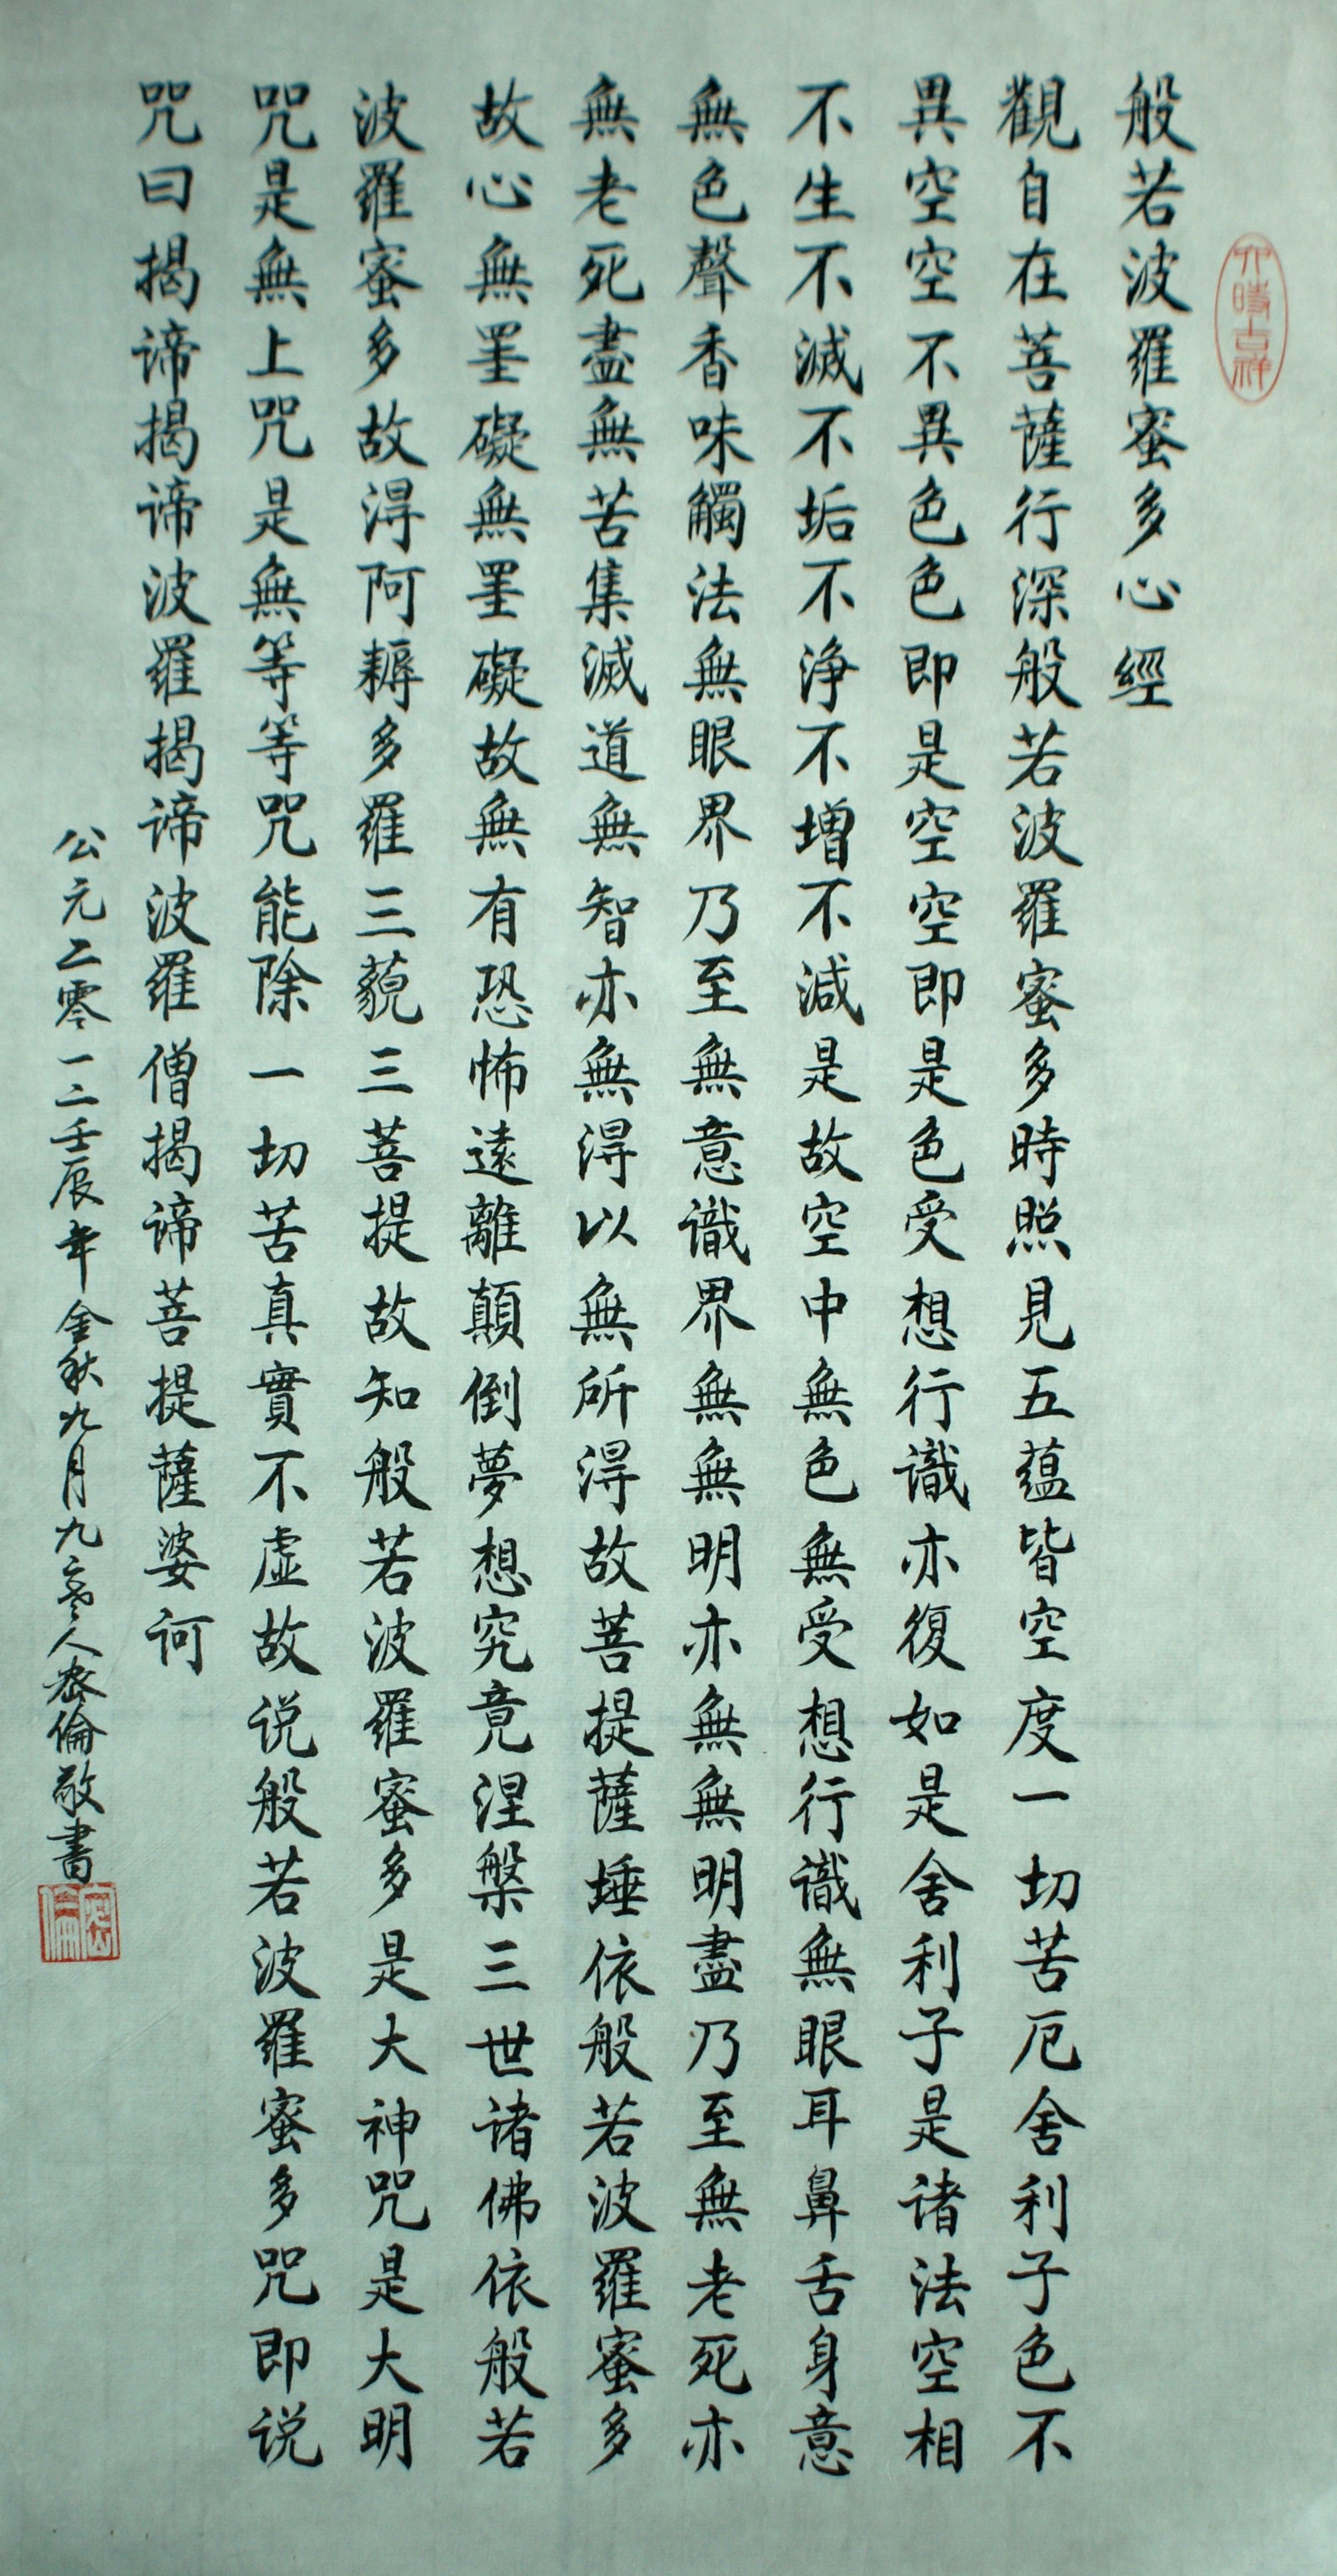 般若波羅蜜多心經
觀自在菩薩行深般若波羅蜜多時照見五蘊皆空度一切苦厄舍利子色不
異空空不異色色即是空空即是色受想行識亦復如是舍利子是诸法空相
不生不滅不垢不淨不增不減是故空中無色無受想行識無眼耳鼻舌身意
無色聲香味觸法無眼界乃至無意識界無無明亦無無明盡乃至無老死亦
無老死盡無苦集滅道無智亦無得以無所得故菩提薩埵依般若波羅蜜多
故心無罣礙無罣礙故無有恐怖遠離顛倒夢想究竟涅槃三世诸佛依般若
波羅蜜多故得阿耨多羅三藐三菩提故知般若波羅蜜多是大神咒是大明
咒是無上咒是無等等咒能除一切苦真實不虛故说般若波羅蜜多咒即说
咒曰揭谛揭谛波羅揭谛波羅僧揭谛菩提薩婆诃
公元二零一二壬辰年金秋九月九人倫敬書